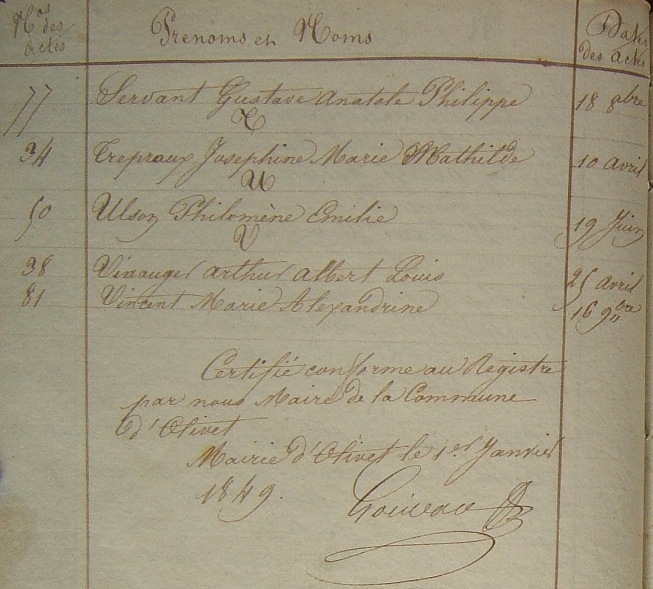 Nos des actes Prenoms et Noms Dates des actes
77 Servant Gustave Anatole Philippe 18 8bre
T
34 Trepraux Josephine Marie Mathilde 10 avril
U
50 Ulson Philomène Emilie 19 Juin
V
38 Vinauger Arthur Albert Louis 25 avril
81 Vincent Marie Alexandrine 16 9bre
Certifié conforme au Registre
par nous Maire de la Commune
d'Olivet
Mairie d'Olivet le 1er Janvier
1849.